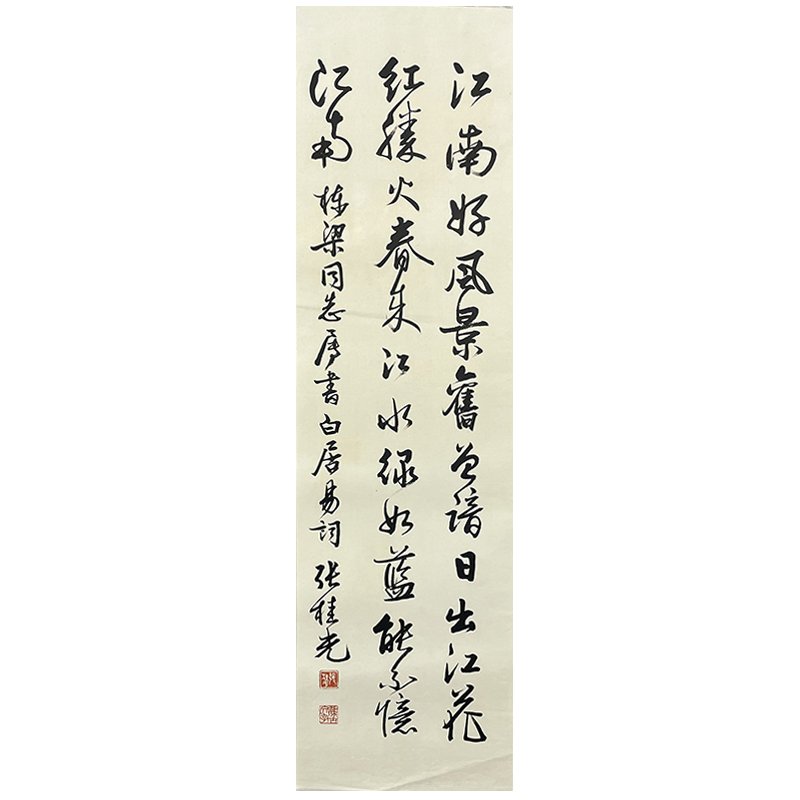 江南好風景舊曾諳日出江花
紅勝火春来江水綠如藍能不憶
江南 栋梁同志属書白居易詞 张桂光